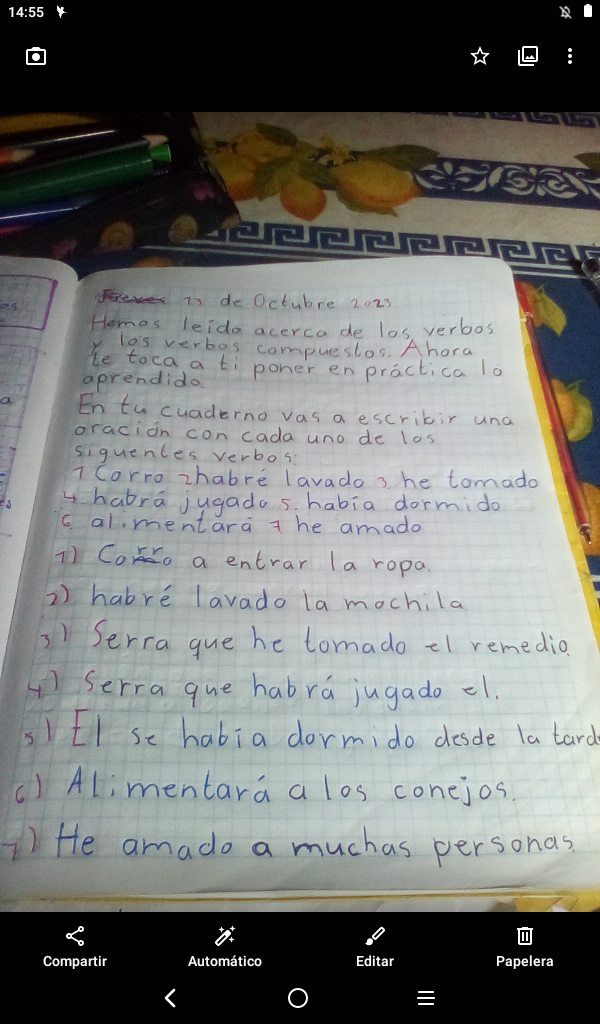 14:55
Jueves 13 de Octubre 2023
Hemos leído acerca de los verbos
y los verbos compuestos. Ahora
te toca a ti poner en práctica lo
aprendido.
En tu cuaderno vas a escribir una
oración con cada uno de los
siguentes verbos:
1 Corro 2 habré lavado 3. he tomado
4 habrá jugado 5. había dormido
6. alimentará 7 he amado
1) Corro a entrar la ropa.
2) habré lavado la mochila
3) Serra que he tomado el remedio.
4) Serra que habrá jugado el.
5) El se había dormido desde la tard
6) Alimentará a los conejos.
7) He amado a muchas personas.
Compartir
Automático
Editar
Papelera